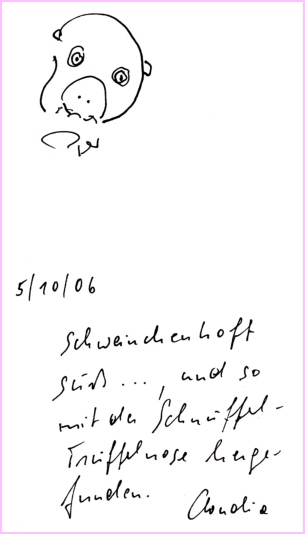 5/10/06
Schweinchenhaft
süß ..., und so
mit der Schnüffel-
Trüffelnase herge-
funden.
Claudia